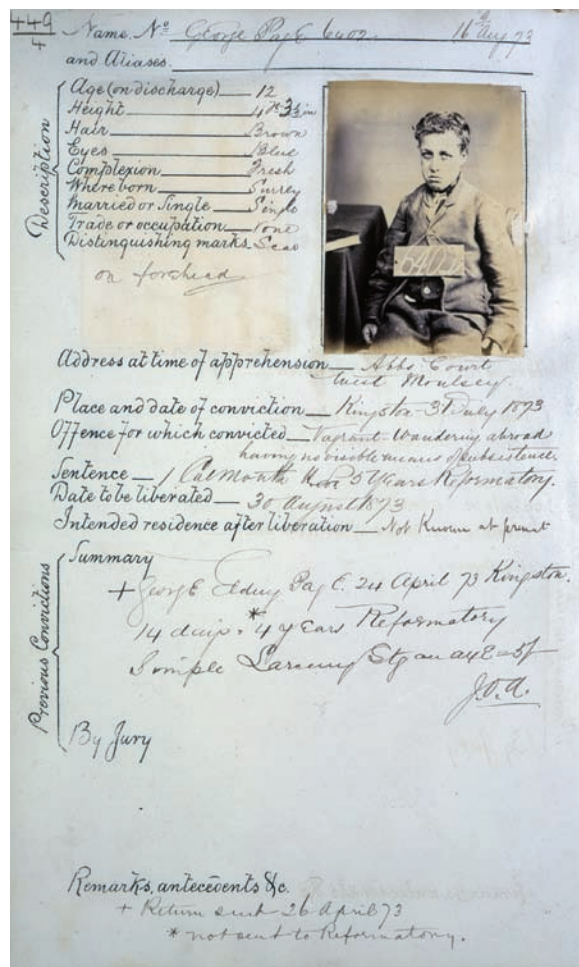 449
4
Name, No George Page 6402 16 Aug 73
and Aliases.
Description
Age (on discharge) 12
Height 4 ft 3½ in
Hair Brown
Eyes Blue
Complexion Fresh
Where born Surrey
Married or Single Single
Trade or occupation None
Distinguishing marks Scar
on forehead
6402
Address at time of apprehension Abbs Court
West Moulsey
Place and date of conviction Kingston 31 July 1873
Offence for which convicted Vagrant - wandering abroad
having no visible means of subsistence
Sentence 1 Cal Month 5 Years Reformatory.
Date to be liberated 30 August 1873
Intended residence after liberation Not Known at present
Previous Convictions
Summary
+ George Page. 24 April 73 Kingston.
14 days * 4 years Reformatory
Simple Larceny
By Jury
Remarks, antecedents &c.
+ Return sent 26 April 73
* not sent to Reformatory.